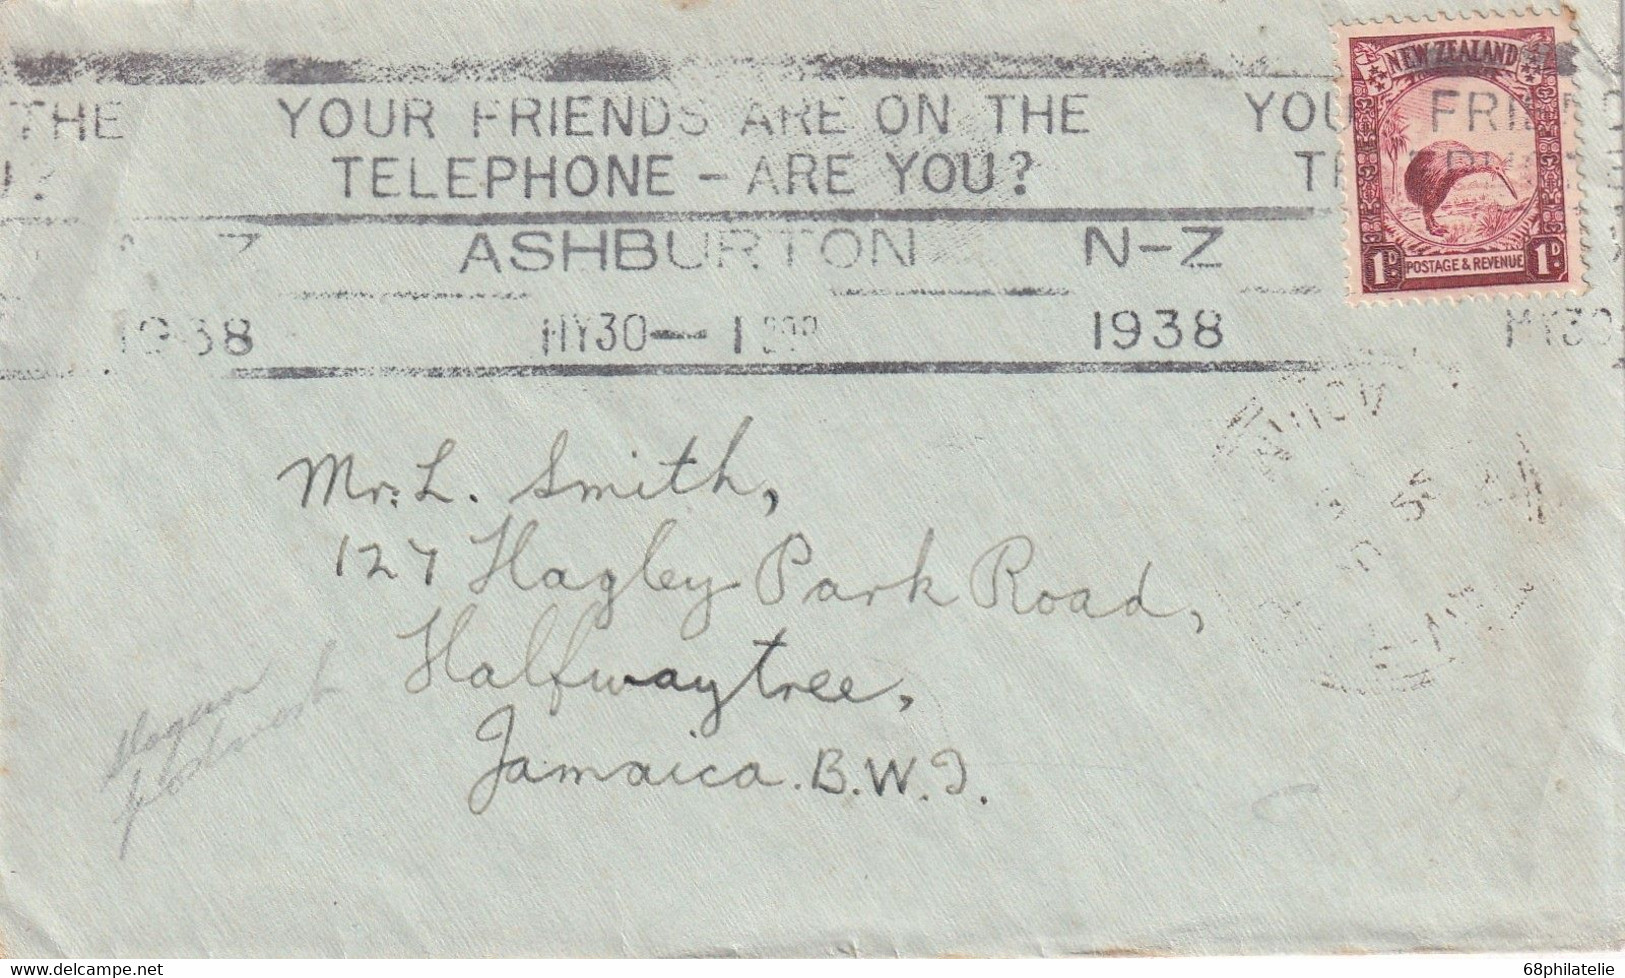 THE YOUR FRIENDS ARE ON THE YOU FRIEN
U? TELEPHONE – ARE YOU? T
Z ASHBURTON N–Z
1938 MY30 – 1 1938 MY30
NEW ZEALAND
1D. POSTAGE & REVENUE 1D.
Mr. L. Smith,
127 Hagley Park Road,
Halfwaytree,
Jamaica. B.W.I.
68philatelie